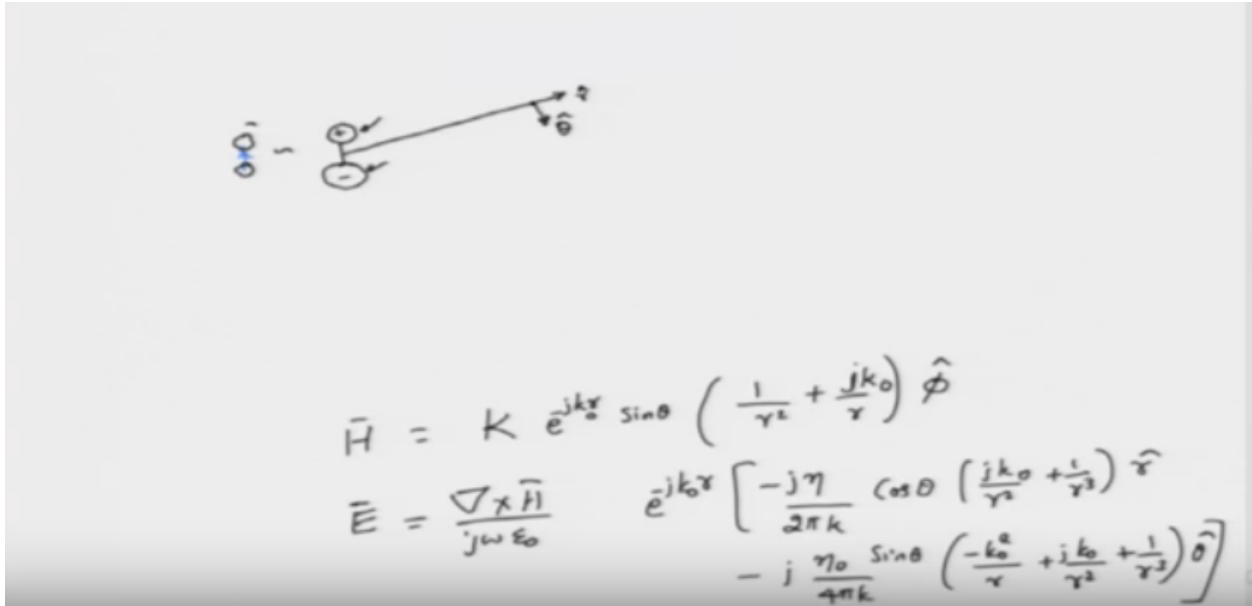 +
-
r̂
θ̂
H̄ = K e^{-jk₀r} sinθ ( 1/r² + jk₀/r ) φ̂
Ē = ∇×H̄ / jωε₀ e^{-jk₀r} [ -jη/2πk cosθ ( jk₀/r² + 1/r³ ) r̂
- j η₀/4πk sinθ ( -k₀²/r + jk₀/r² + 1/r³ ) θ̂ ]